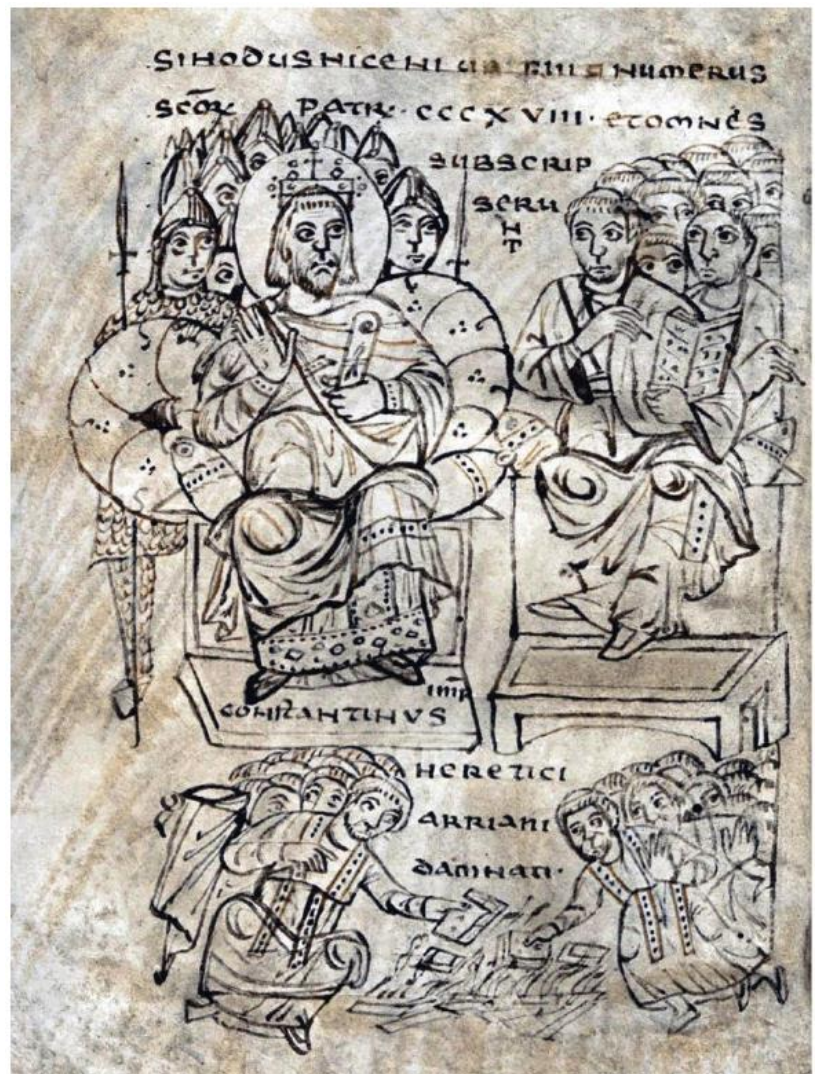 SINODUS NICENI NUMERUS
SCŌRꝜ PATRꝜ · CCCXVIII · ET OMNES
SUBSCRIP
SERU
N
T
IMP̄
CONSTANTINVS
HERETICI
ARRIANI
DAMNATI ·